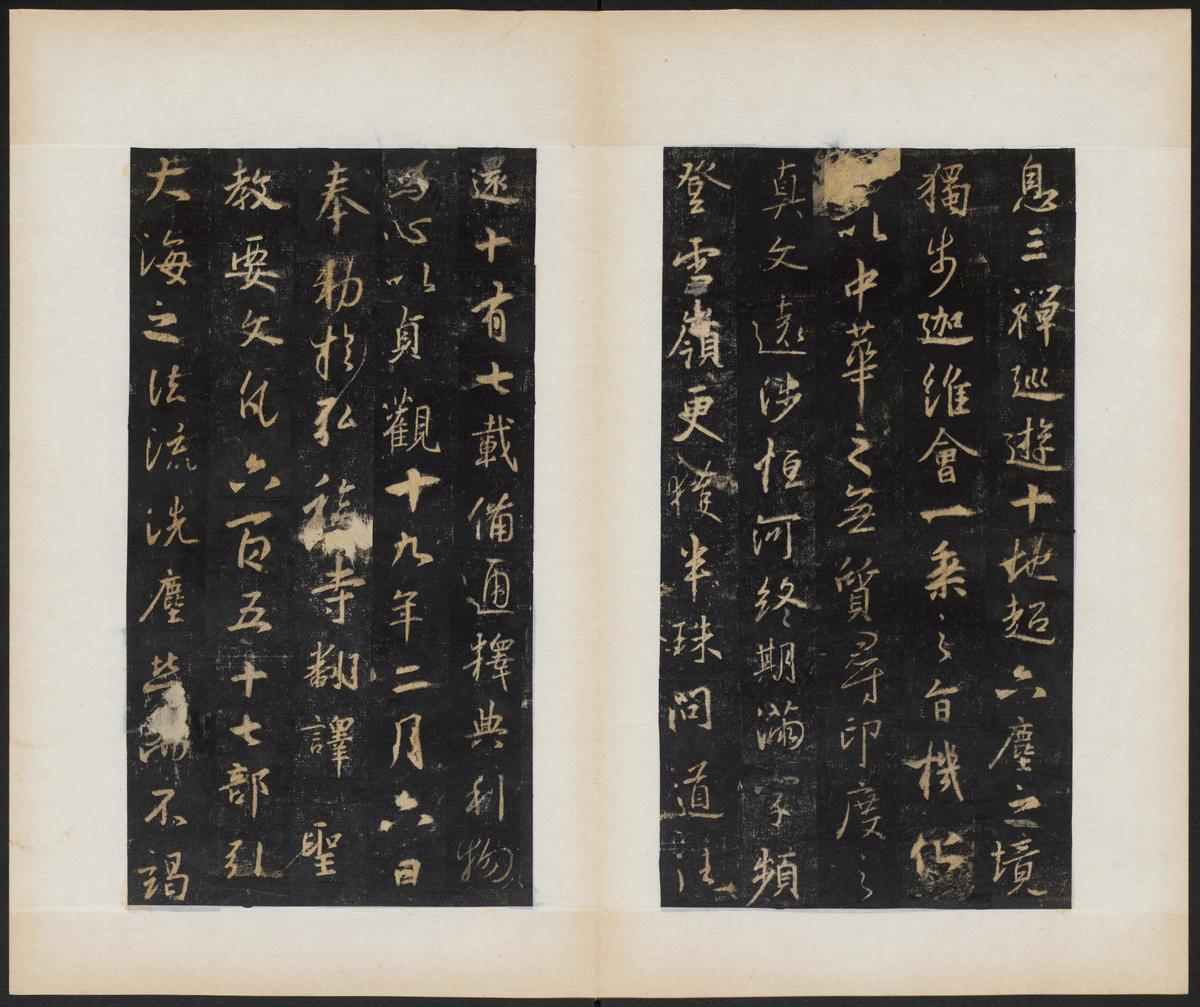 息三禪巡遊十地超六塵之境
獨步迦維會一乘之旨機化
以中華之無質尋印度之
真文遠涉恒河終期滿字頻
登雪嶺更獲半珠問道往
還十有七載備通釋典利物
為心以貞觀十九年二月六日
奉勅於弘福寺翻譯聖
教要文凡六百五十七部引
大海之法流洗塵而不竭